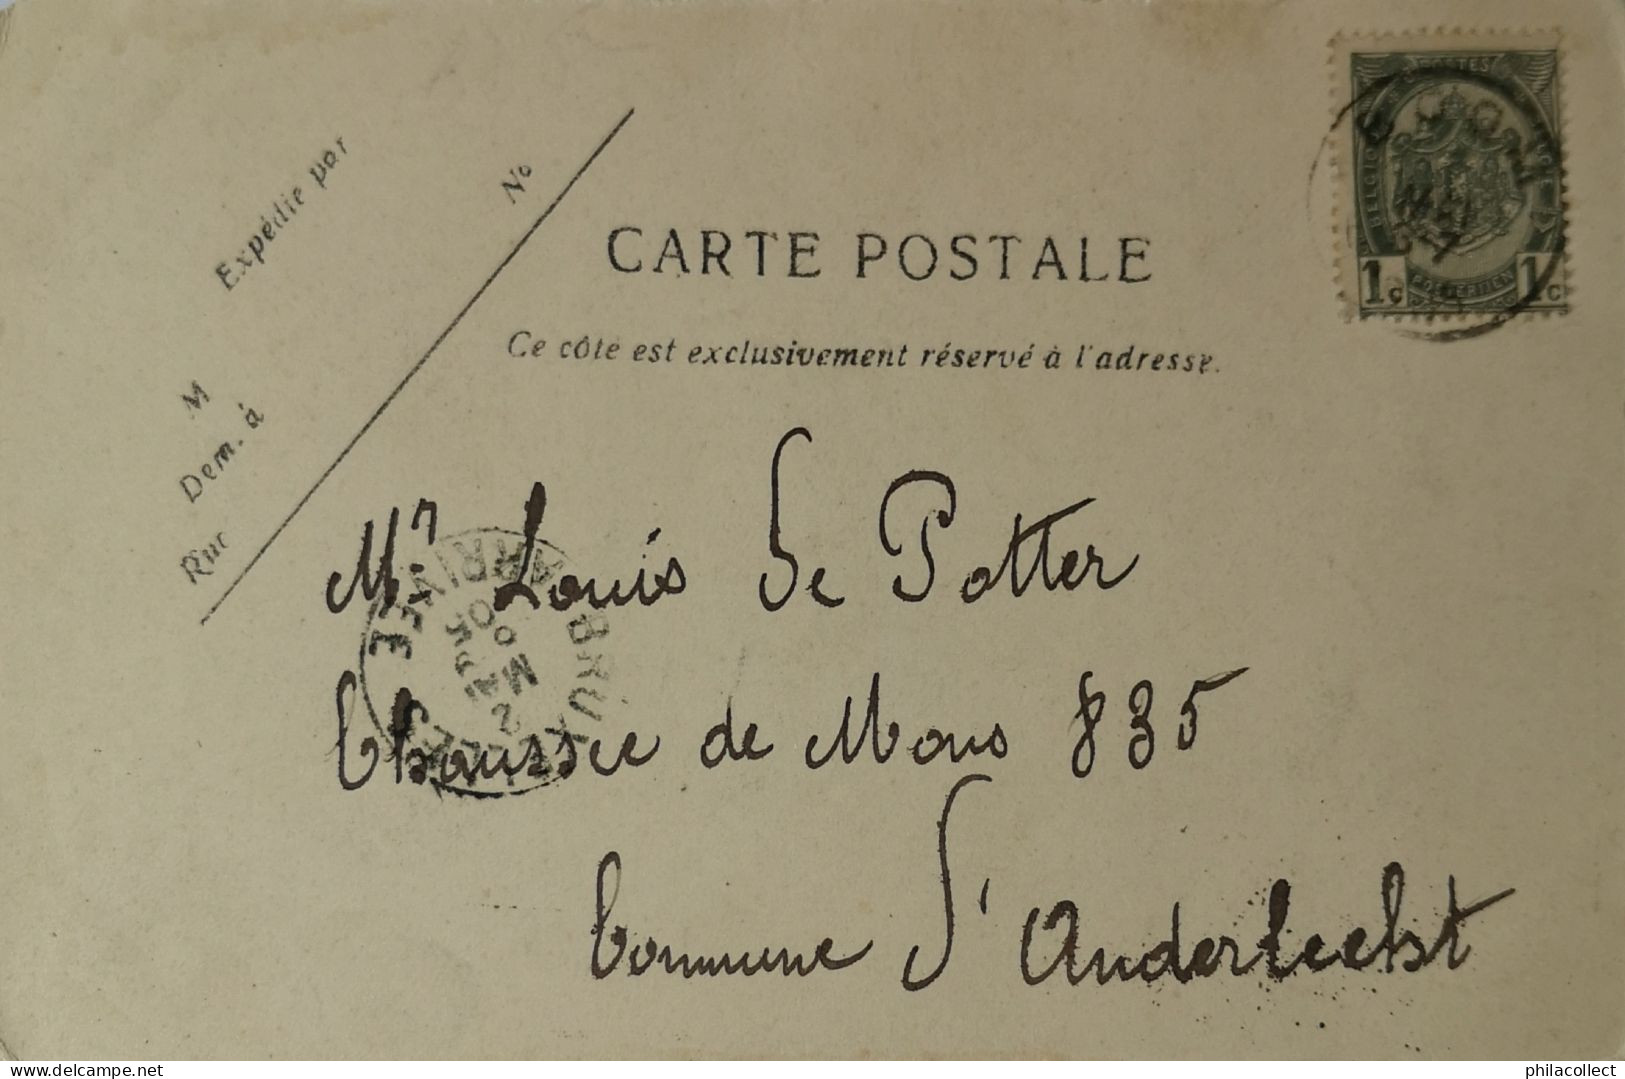 Expédié par
No
M
Dem. à
Rue
CARTE POSTALE
Ce côté est exclusivement réservé à l'adresse.
POSTES
BELGIQUE
POSTERIJEN
1c 1c
Mr Louis De Potter
Chaussée de Mons 835
Commune d'Anderlecht
BRUXELLES
ARRIVEE
2
MAI
05
delcampe.net
philacollect